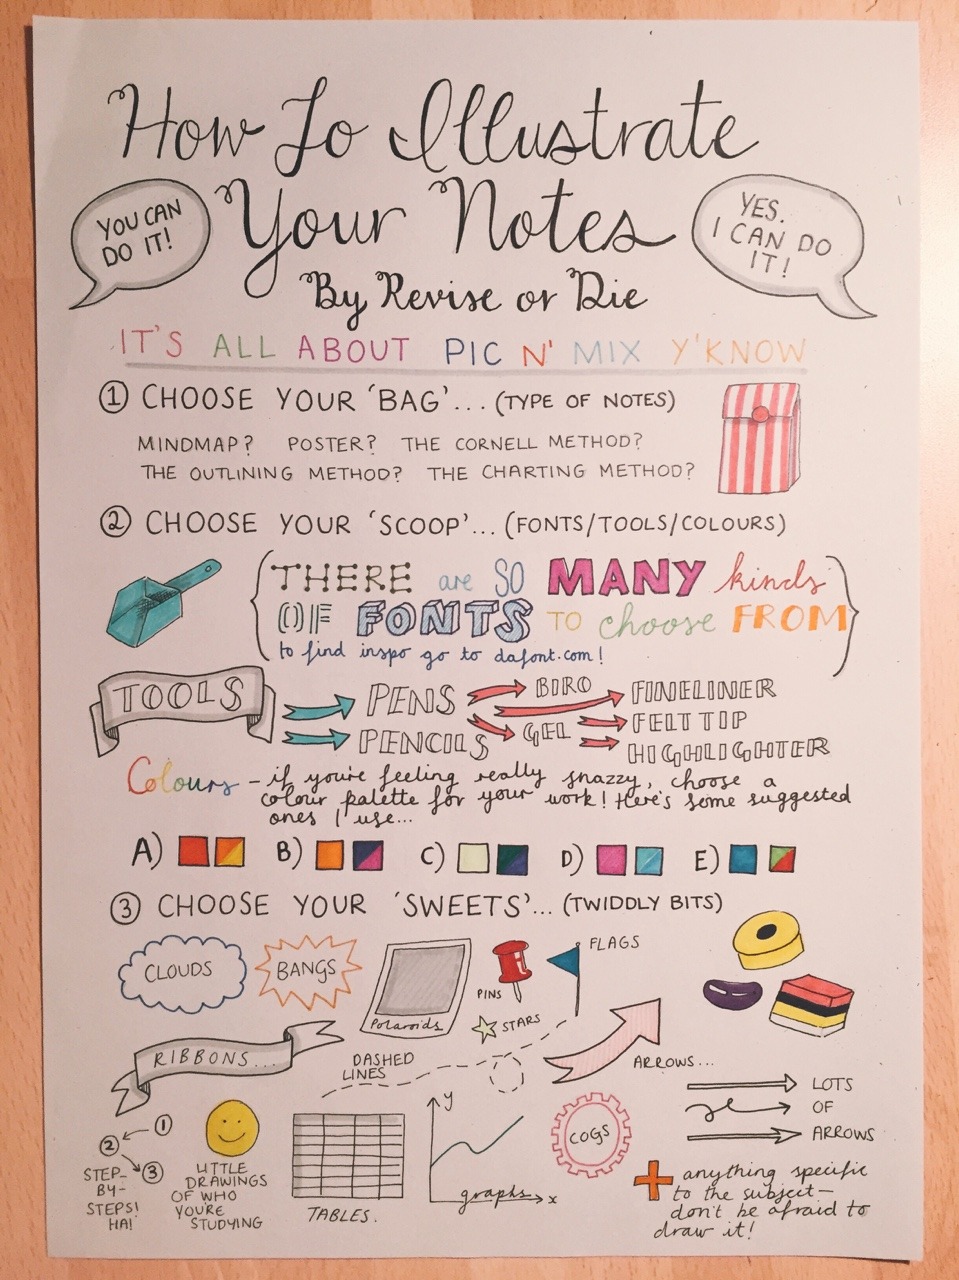 How To Illustrate
Your Notes
YOU CAN
DO IT!
YES.
I CAN DO
IT!
By Revise or Die
IT'S ALL ABOUT PIC N' MIX Y'KNOW
① CHOOSE YOUR 'BAG'... (TYPE OF NOTES)
MINDMAP? POSTER? THE CORNELL METHOD?
THE OUTLINING METHOD? THE CHARTING METHOD?
② CHOOSE YOUR 'SCOOP'... (FONTS/TOOLS/COLOURS)
THERE are SO MANY kinds
OF FONTS TO choose FROM
to find inspo go to dafont.com!
TOOLS
PENS
PENCILS
BIRO
GEL
FINELINER
FELT TIP
HIGHLIGHTER
Colours - if you're feeling really snazzy, choose a
colour palette for your work! Here's some suggested
ones I use...
A) B) C) D) E)
③ CHOOSE YOUR 'SWEETS'... (TWIDDLY BITS)
CLOUDS
BANGS
Polaroids
PINS
FLAGS
STARS
RIBBONS...
DASHED
LINES
ARROWS...
LOTS
OF
ARROWS
① ② ③
STEP-
BY-
STEPS!
HA!
LITTLE
DRAWINGS
OF WHO
YOU'RE
STUDYING
TABLES.
y
graphs
x
COGS
+ anything specific
to the subject—
don't be afraid to
draw it!